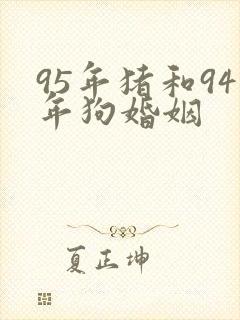 95年猪和94
年狗婚姻
夏正坤